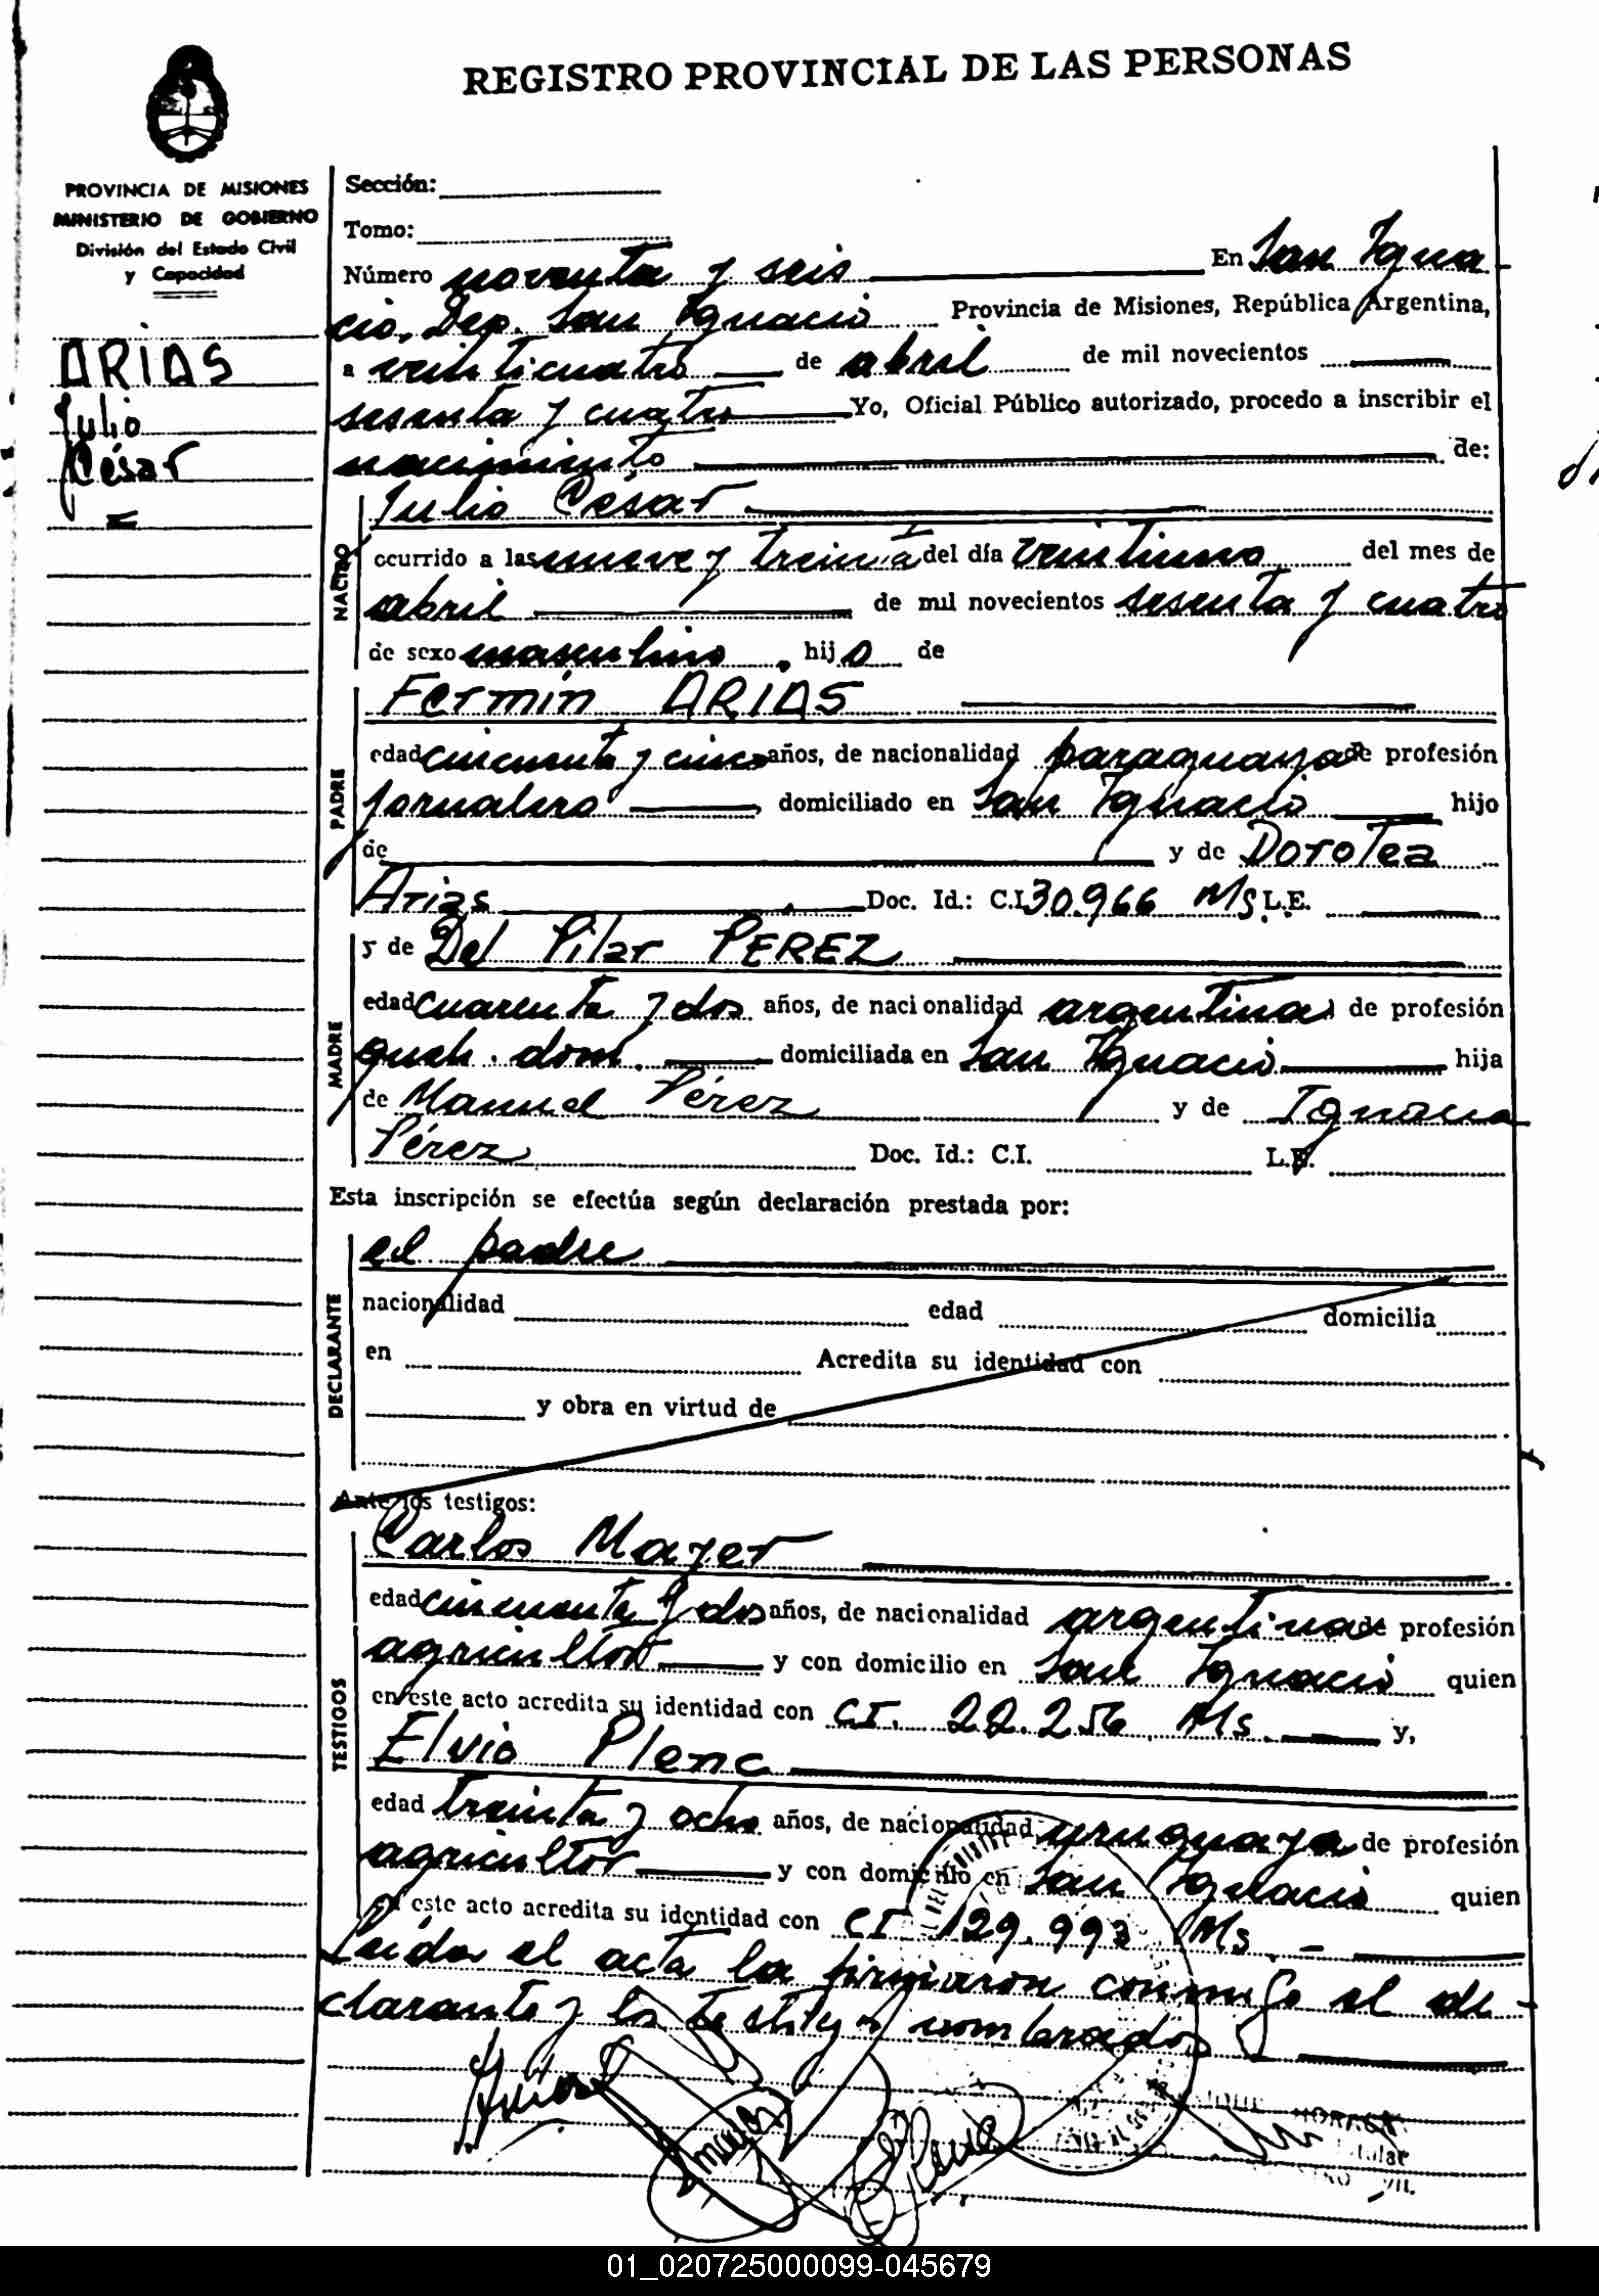 REGISTRO PROVINCIAL DE LAS PERSONAS
PROVINCIA DE MISIONES
MINISTERIO DE GOBIERNO
División del Estado Civil
y Capacidad
ARIAS
Julio
César
Sección:
Tomo:
Número noventa y seis En San Igna
cio, Dep. San Ignacio Provincia de Misiones, República Argentina,
a veinticuatro de abril de mil novecientos
sesenta y cuatro Yo, Oficial Público autorizado, procedo a inscribir el
nacimiento de:
NACIDO
Julio César
ocurrido a las nueve y treinta del día veintiuno del mes de
abril de mil novecientos sesenta y cuatro
de sexo masculino, hijo de
PADRE
Fermín ARIAS
edad cincuenta y cinco años, de nacionalidad paraguaya de profesión
jornalero, domiciliado en San Ignacio hijo
de y de Dorotea
Arias Doc. Id.: C.I. 30.966 Ms L.E.
MADRE
y de Del Pilar PEREZ
edad cuarenta y dos años, de nacionalidad argentina de profesión
queh. dom. domiciliada en San Ignacio hija
de Manuel Pérez y de Ignacia
Pérez Doc. Id.: C.I. L.E.
Esta inscripción se efectúa según declaración prestada por:
DECLARANTE
el padre
nacionalidad edad domicilia
en Acredita su identidad con
y obra en virtud de
Ante los testigos:
TESTIGOS
Carlos Mayer
edad cincuenta y dos años, de nacionalidad argentina de profesión
agricultor y con domicilio en San Ignacio quien
en este acto acredita su identidad con CI. 22.256 Ms. y,
Elvio Plenc
edad treinta y ocho años, de nacionalidad uruguaya de profesión
agricultor y con domicilio en San Ignacio quien
en este acto acredita su identidad con CI 129.993 Ms.
Leída el acta la firmaron conmigo el de-
clarante y los testigos nombrados
01_020725000099-045679